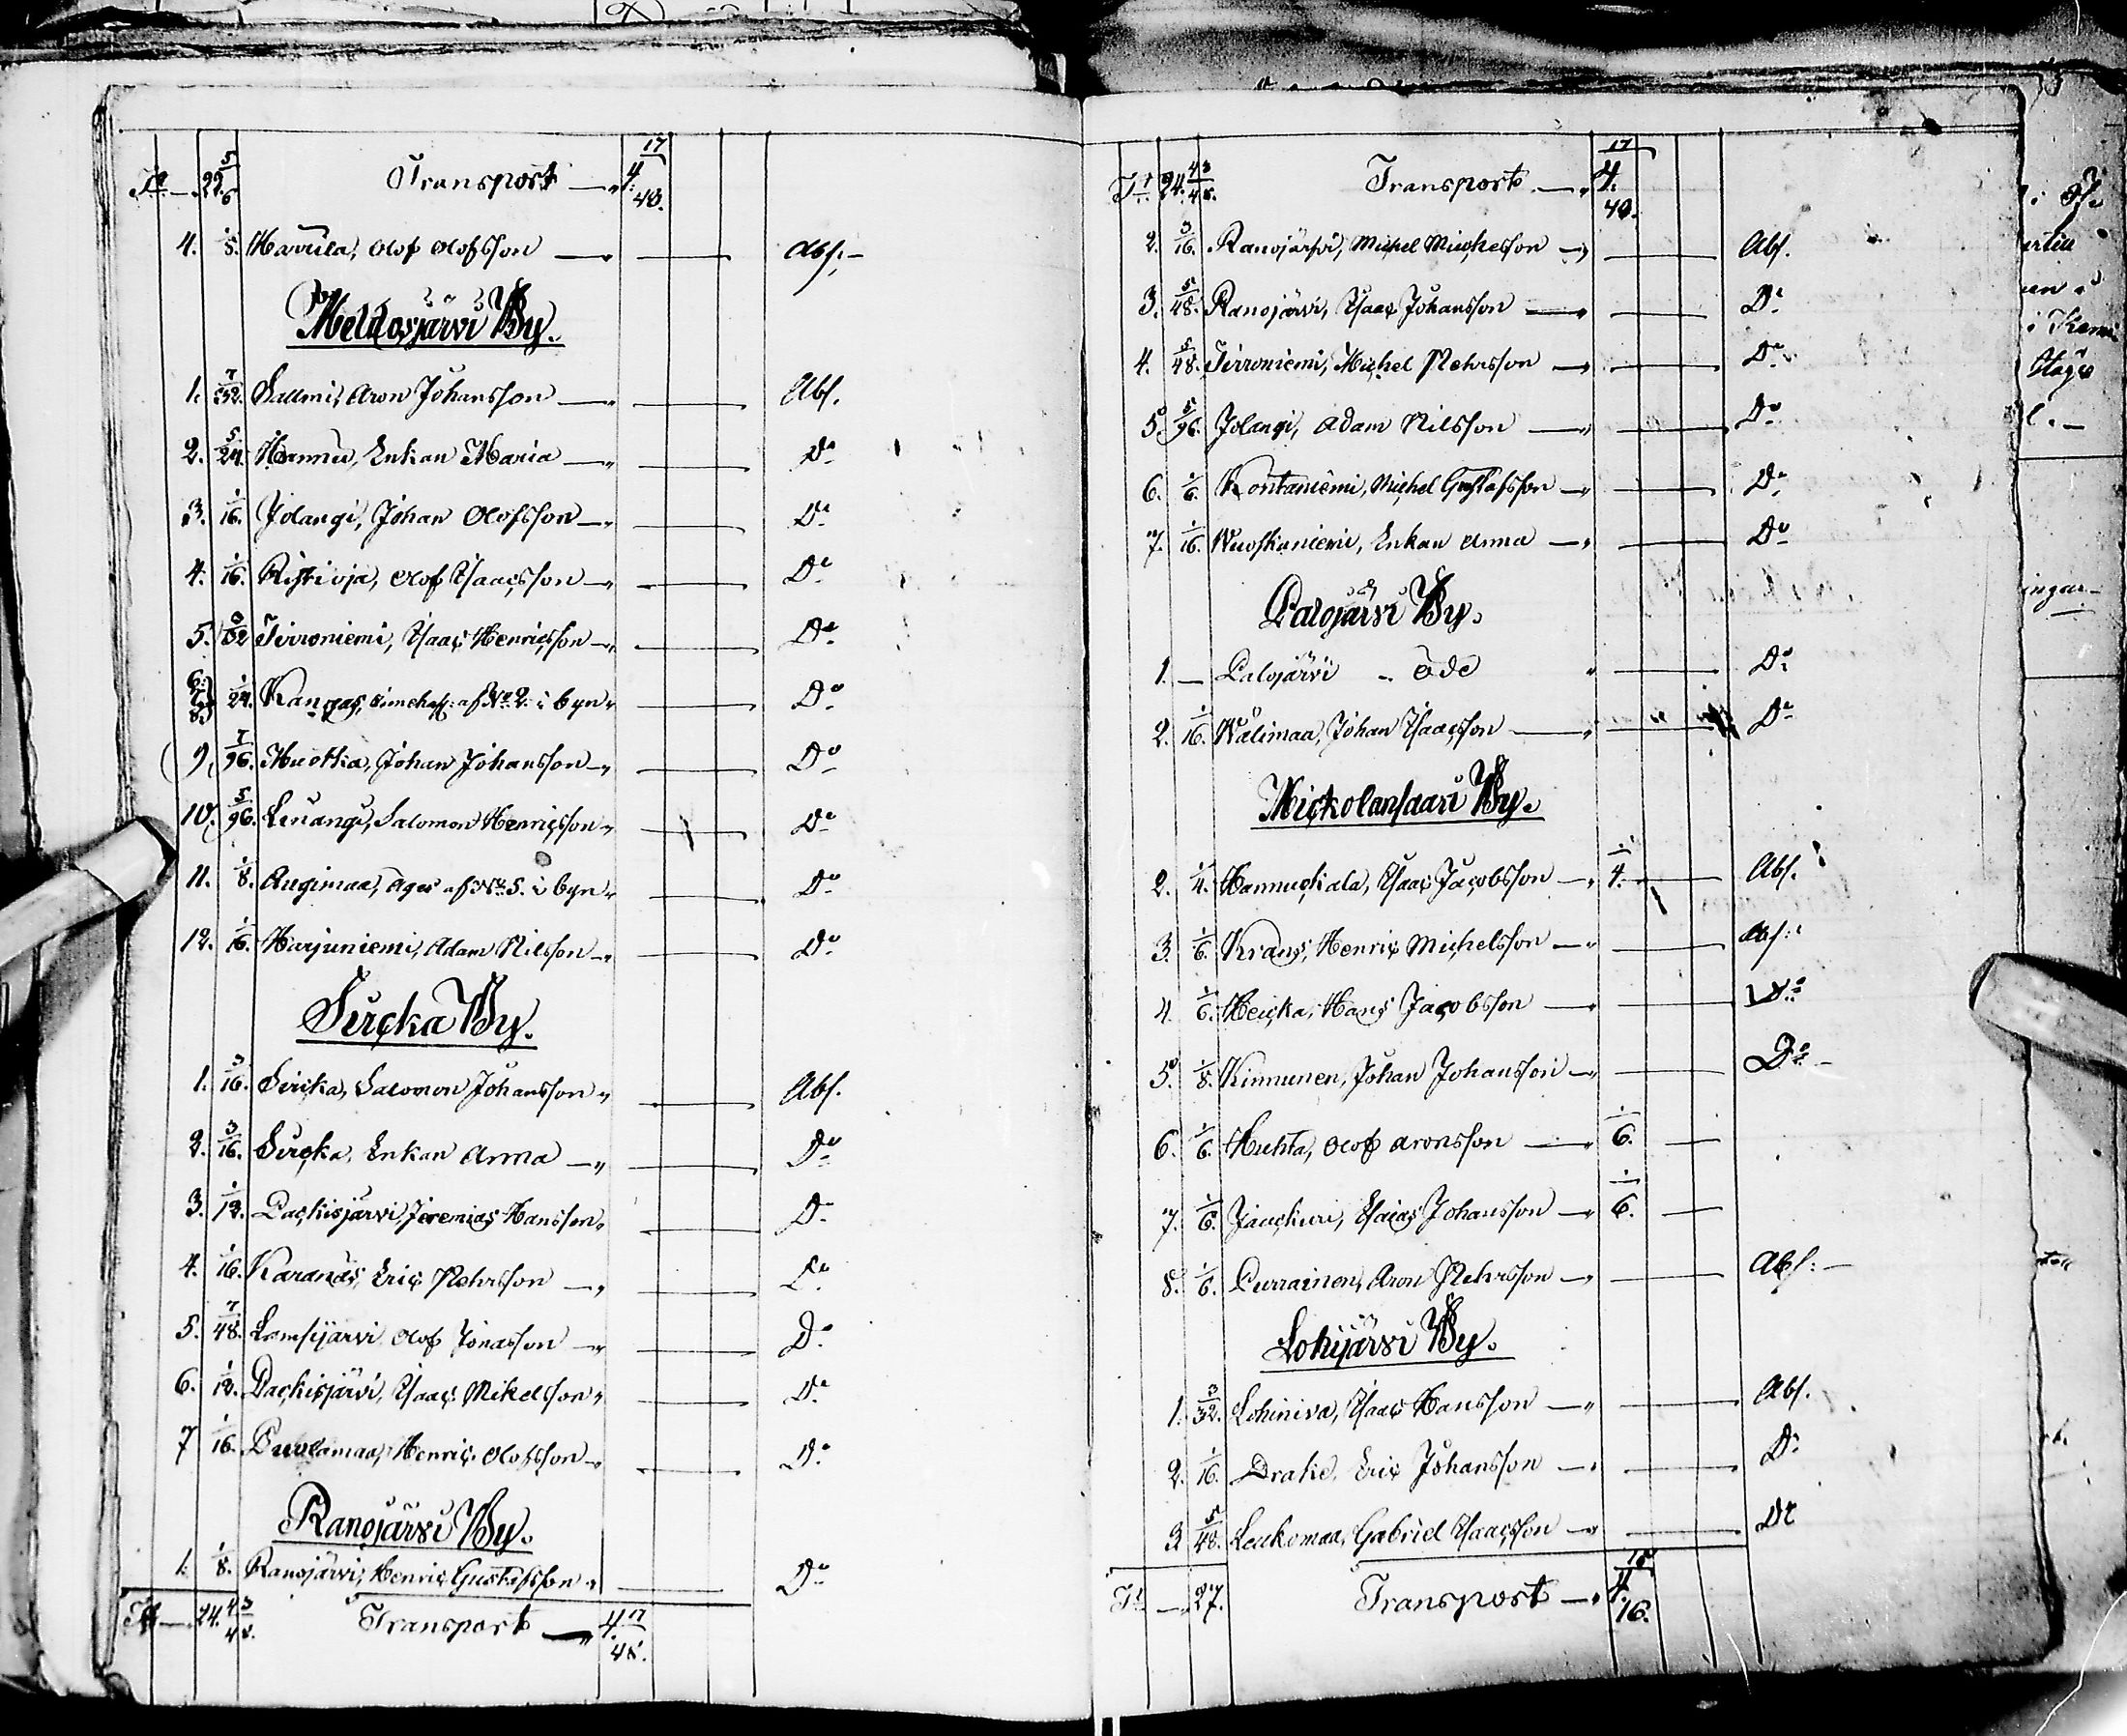 Tr — 22. 5/6 Transport — 4. 17/48.
4. 1/8. Harrila, Olof Olofsson — Abs:
Meldosjärvi By.
1. 7/32. Sallmi, Aron Johansson — Abs.
2. 5/24. Hannu, Enkan Maria — Do
3. 1/16. Jolangi, Johan Olofsson — Do
4. 1/16. Ristioja, Olof Isaacsson — Do
5. /32 Tirroniemi, Isaac Henricsson — Do
6. 7. 8. 1/24. Kangas, af No 2. i byn Do
9. 7/96. Muotka, Johan Johansson — Do
10. 5/96. Liuangi, Salomon Henricsson Do
11. 1/8. Augimaa, äges af No 5. i byn Do
12. 1/16. Harjuniemi, Adam Nilsson — Do
Sircka By.
1. 3/16. Sircka, Salomon Johansson Abs.
2. 3/16. Sircka, Enkan Anna — Do
3. 1/12. Packisjärvi, Jeremias Hansson Do
4. 1/16. Karanäs, Eric Pehrsson — Do
5. 7/48. Lamsijärvi Olof Jönasson — Do
6. 1/12. Packisjärvi, Isaac Mikelsson Do
7 1/16. Puolamaa, Henric Olofsson — Do
Ranojärvi By.
1. 1/8. Ranojärvi, Henric Gustafsson Do
Tr — 24. 43/48. Transport — 4. 17/48.
Tr 24. 43/48. Transport — 4. 17/48.
2. 3/16. Ranojärfvi, Michel Michelsson — Abs.
3. 5/48. Ranojärvi, Isaac Johansson — Do
4. 5/48. Tirroniemi, Michel Pehrsson — Do
5. 5/96. Jolangi, Adam Nilsson — Do
6. 1/6. Kontaniemi, Michel Gustafsson — Do
7. 1/16. Wuoskuniemi, Enkan Anna — Do
Palojärvi By.
1. — Palojärvi Öde Do
2. 1/16. Wälimaa, Johan Isaacsson — Do
Mickolansaari By.
2. 1/4. Hannuckala, Isaac Jacobsson — 1/4. Abs.
3. 1/6. Krans, Henric Michelsson — Abs:
4. 1/6. Heicka, Hans Jacobsson — Do
5. 1/8. Kinnunen, Johan Johansson — Do
6. 1/6. Huhta, Olof Aronsson — 1/6.
7. 1/6. Jauckuri, Esaias Johansson — 1/6.
8. 1/6. Purrainen, Aron Pehrsson — Abs:
Lohijärvi By.
1. 3/32. Lohiniva, Isaac Hansson — Abs.
2. 1/16. Drake, Eric Johansson — Do
3. 5/48. Leukomaa, Gabriel Isaacsson — Do
Tr — 27. Transport — 4. 15/16.